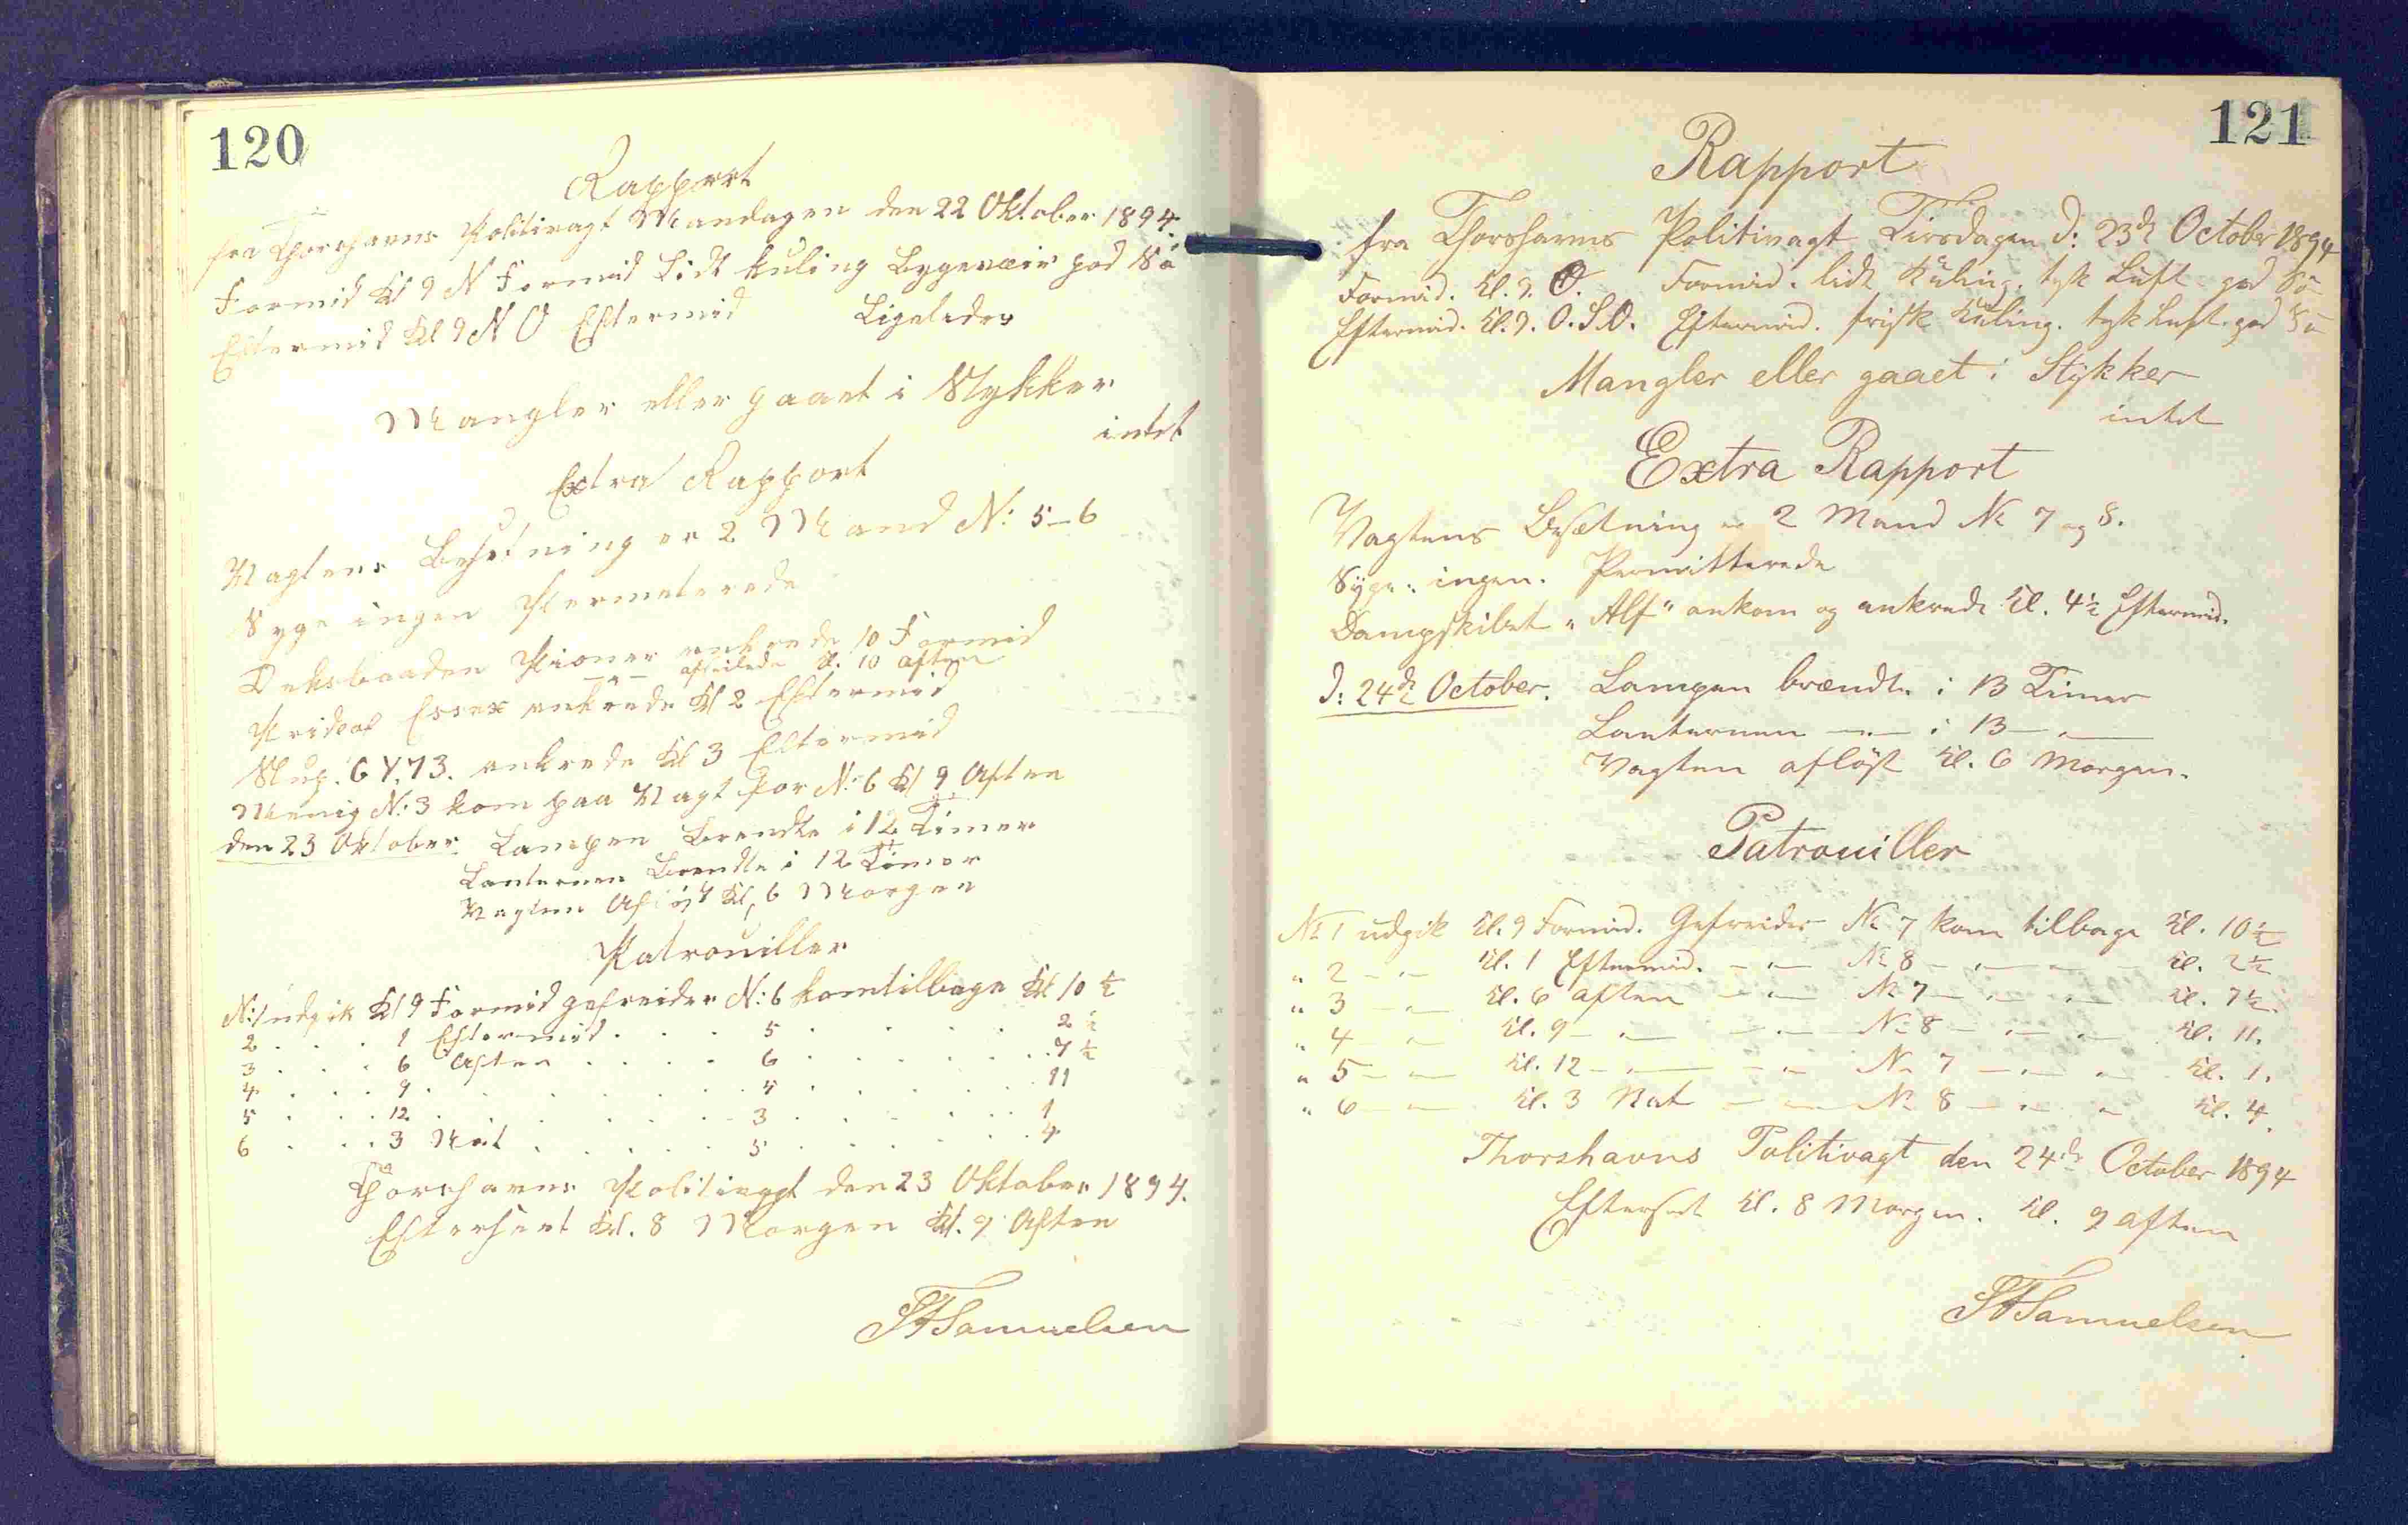 120
Rapport
fra Thorshavns Politivagt Mandagen den 22 Oktober 1894.
Formid Kl 9 N Formid Lidt kuling Bygeveir god Sö
Eftermid Kl 9 N O Eftermid Ligeledes
Mangler eller gaaet i Stykker
intet
Extra Rapport
Vagtens Besetning er 2 Mand N: 5-6
Syge ingen Permeterede
Deksbaaden Pioner ankrede 10 Formid
—"— afseilede Kl. 10 Aften
Essex ankrede Kl 2 Eftermid
Slup. G Y. 73. ankrede Kl 3 Eftermid
Menig N: 3 kom paa Vagt for N: 6 Kl 9 Aften
den 23 Oktober. Lampen Brendte i 12 Timer
Lanternen Brendte i 12 Timer
Vagten Aflöst Kl, 6 Morgen
Patrouiller
N: 1 udgik Kl 9 Formid gefreider N: 6 kom tilbage Kl 10 ½
2 . . . 1 Eftermid . . . 5 . . . . . 2 ½
3 . . . 6 Aften . . . . 6 . . . . . 7 ½
4 . . . 9 . . . . . . 5 . . . . . 11
5 . . . 12 . . . . . . 3 . . . . . 1
6 . . . 3 Nat . . . . . 5 . . . . . 4
Thorshavns Politivagt den 23 Oktober 1894.
Efterseet Kl. 8 Morgen Kl. 9 Aften
SFSamuelsen
121
Rapport
fra Thorshavns Politivagt Tirsdagen d: 23de October 1894
Formid. Kl. 9. O. Formid. lidt Kuling. tyk Luft god Sö
Eftermid. Kl. 9. O.S.O. Eftermid. frisk Kuling. tyk Luft. god Sö
Mangler eller gaaet i Stykker
intet
Extra Rapport
Vagtens Besætning er 2 Mand No 7 og 8.
Syge: ingen. Permitterede
Dampskibet "Alf" ankom og ankrede Kl. 4½ Eftermid.
d: 24de October. Lampen brændte i 13 Timer
Lanternen —"— i 13 —"—
Vagten aflöst Kl. 6 Morgen.
Patrouiller
No 1 udgik Kl. 9 Formid. Gefreider No 7 kom tilbage Kl. 10½
" 2 —"— Kl. 1 Eftermid. —"— No 8 —"— —"— Kl. 2½
" 3 —"— Kl. 6 Aften —"— No 7 —"— —"— Kl. 7½.
" 4 —"— Kl. 9 —"— —"— No 8 —"— —"— Kl. 11.
" 5 —"— Kl. 12 —"— —"— No 7 —"— —"— Kl. 1.
" 6 —"— Kl. 3 Nat —"— No 8 —"— —"— Kl. 4.
Thorshavns Politivagt den 24de October 1894
Efterset Kl. 8 Morgen. Kl. 9 Aften
SFSamuelsen